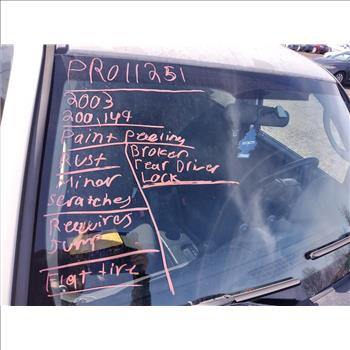 PRO11251
2003
200,149
Paint peeling
Rust
Minor
scratches
Requires
Jump
Flat tire
Broken
rear Driver
Lock